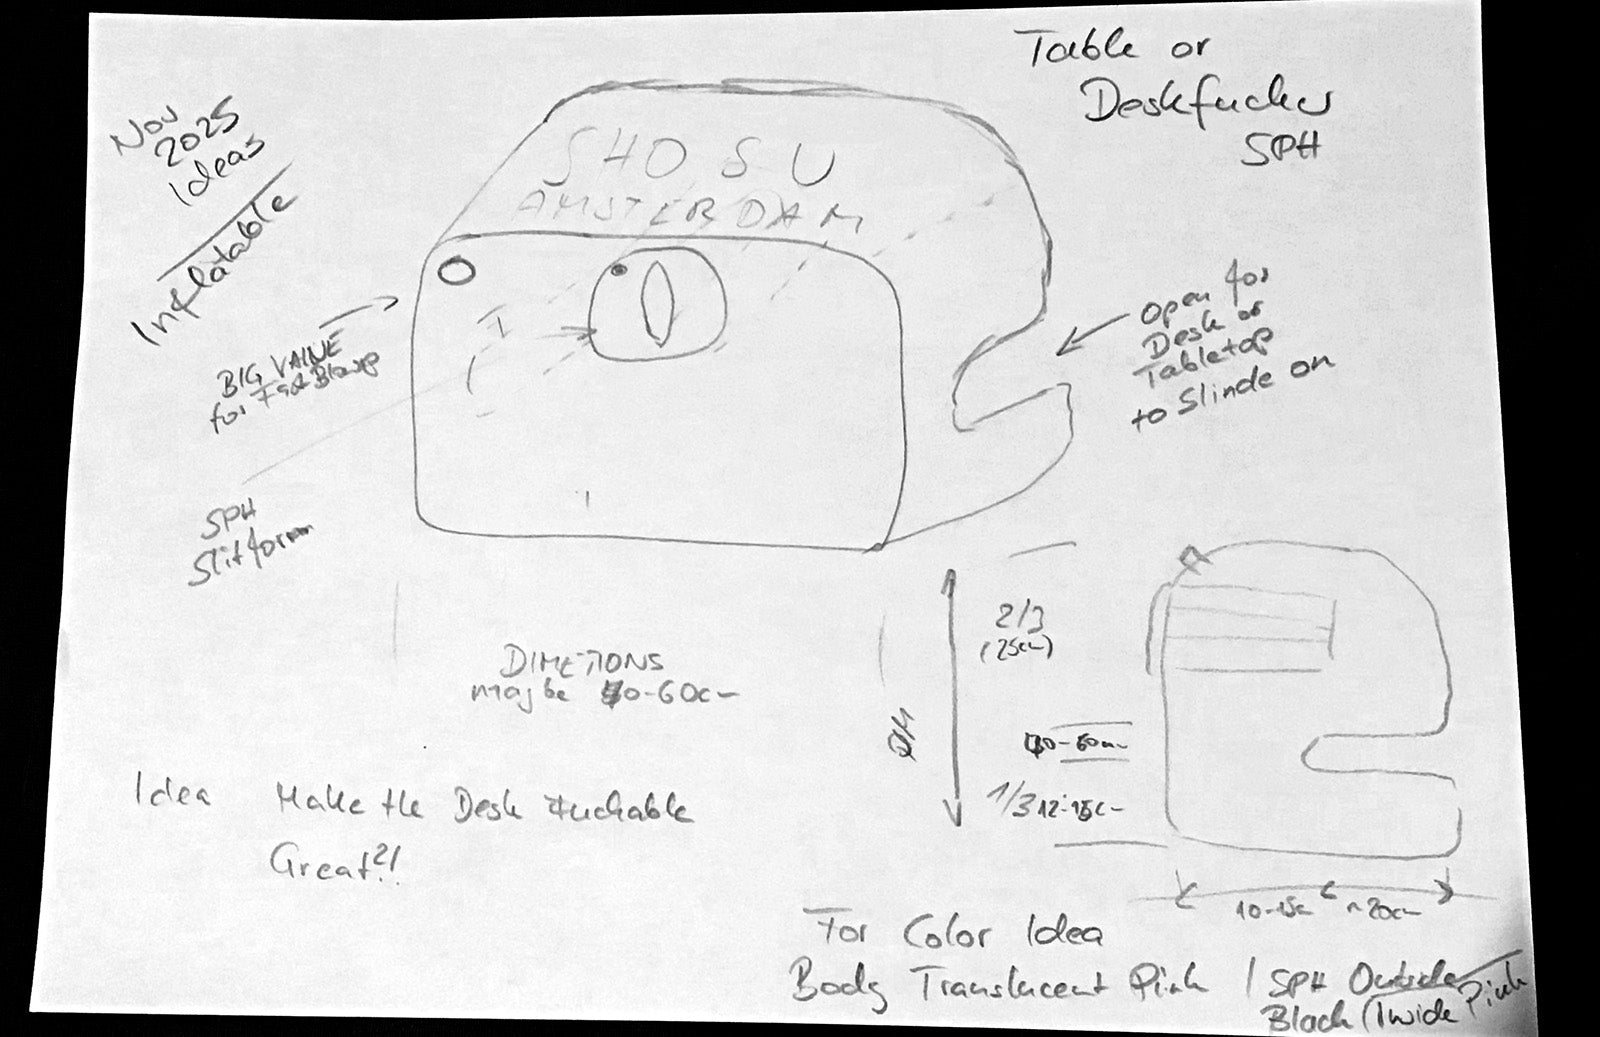 Nov
2025
Ideas
Inflatable
Table or
Deskfucker
SPH
SHOSU
AMSTERDAM
BIG VALVE
for Fast Blowup
SPH
Slitform
Open for
Desk or
Tabletop
to Slinde on
DIMETIONS
maybe 40-60cm
2/3
(25cm)
40-60cm
1/3 12-15cm
10-15cm ~20cm
Idea Make the Desk Fuckable
Great?!
For Color Idea
Body Translucent Pink / SPH Outside
Black / Inside Pink